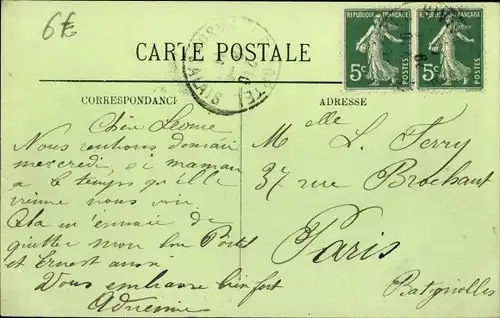 6€
CARTE POSTALE
RÉPUBLIQUE FRANÇAISE
5c
POSTES
RÉPUBLIQUE FRANÇAISE
5c
POSTES
CALAIS
CORRESPONDANCE
ADRESSE
Chère Leonie
Nous rentrons demain
mercredi, si maman
a le temps qu'elle
vienne nous voir
Cela m'ennuie de
quitter mon bon Portel
et Ernest aussi
Vous embrasse bien fort
Adrienne
Melle L. Ferry
37 rue Brochant
Paris
Batignolles